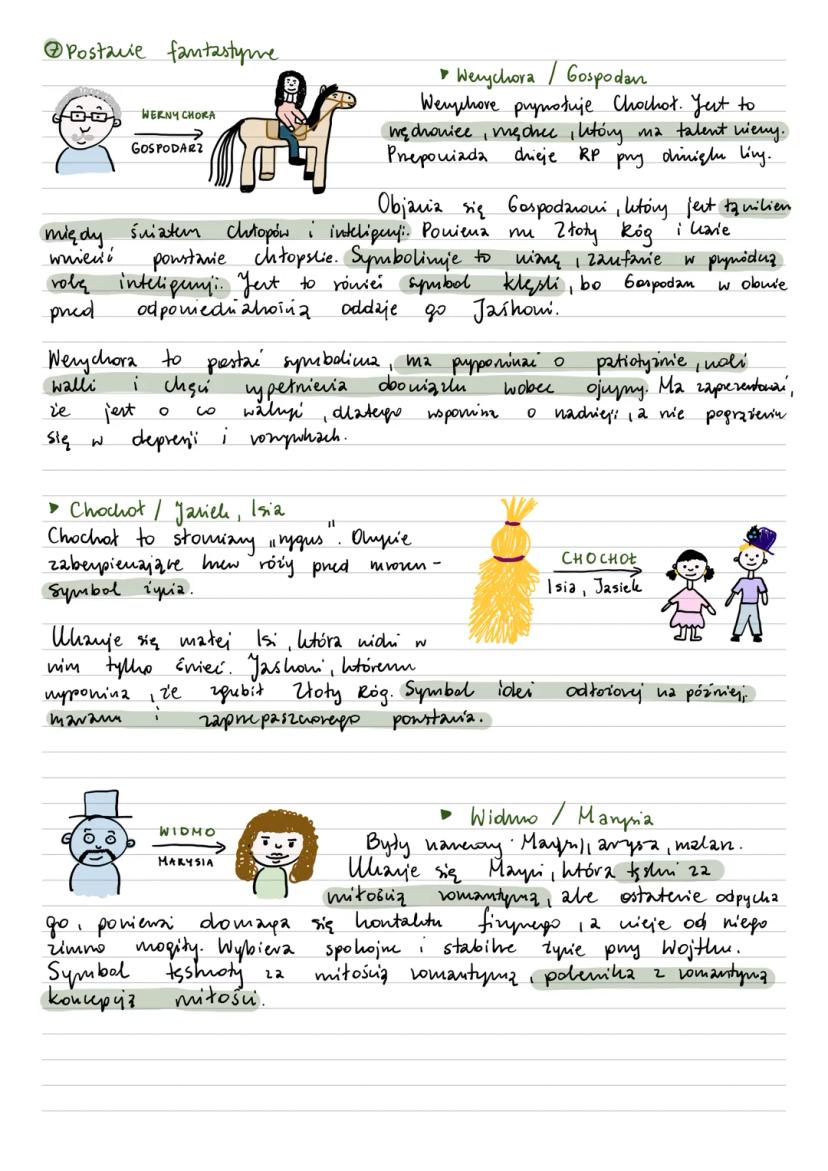 ⑦ Postacie fantastyczne
▸ Wernychora / Gospodarz
WERNYCHORA
GOSPODARZ
Wernychorę przywołuje Chochoł. Jest to
wędrowiec, mędrzec, który ma talent wieszczy.
Przepowiada dzieje RP przy dźwięku liry.
Objawia się Gospodarzowi, który jest łącznikiem
między światem chłopów i inteligencji. Powierza mu Złoty Róg i każe
wzniecić powstanie chłopskie. Symbolizuje to wiarę, zaufanie w przywódczą
rolę inteligencji. Jest to również symbol klęski, bo Gospodarz w obawie
przed odpowiedzialnością oddaje go Jaśkowi.
Wernychora to postać symboliczna, ma przypominać o patriotyzmie, woli
walki i chęci wypełnienia obowiązku wobec ojczyzny. Ma zaprezentować,
że jest o co walczyć, dlatego wspomina o nadziei, a nie pogrążeniu
się w depresji i rozrywkach.
▸ Chochoł / Jasiek, Isia
Chochoł to słomiany "rygus". Okrycie
zabezpieczające krzew róży przed mrozem -
symbol życia.
CHOCHOŁ
Isia, Jasiek
Ukazuje się małej Isi, która widzi w
nim tylko śmieć. Jaśkowi, któremu
wypomina, że zgubił Złoty Róg. Symbol idei odłożonej na później,
marazmu i zaprzepaszczonego powstania.
WIDMO
MARYSIA
▸ Widmo / Marysia
Były narzeczony Marysi, artysta, malarz.
Ukazuje się Marysi, która tęskni za
miłością romantyczną, ale ostatecznie odpycha
go, ponieważ domaga się kontaktu fizycznego, a wieje od niego
zimno mogiły. Wybiera spokojne i stabilne życie przy Wojtku.
Symbol tęsknoty za miłością romantyczną, polemika z romantyczną
koncepcją miłości.